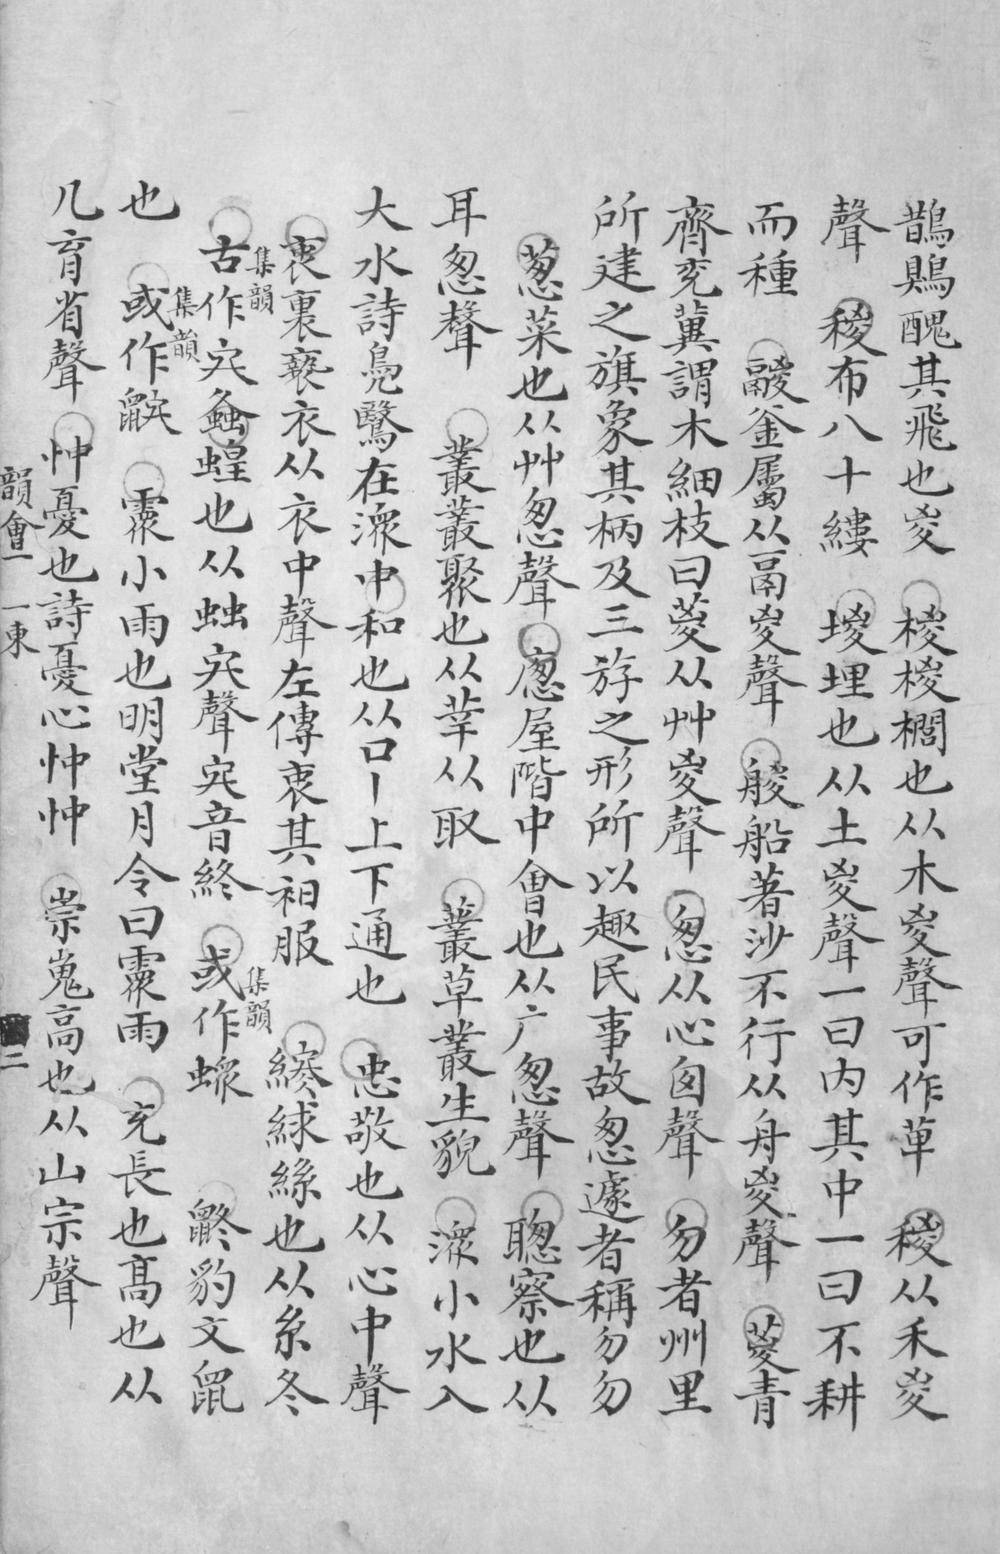 鵲鶪醜其飛也㚇　椶椶櫚也从木㚇聲可作萆　稯从禾㚇
聲　稯布八十縷　堫堫埋也从土㚇聲一曰内其中一曰不耕
而種　鬷釜屬从鬲㚇聲　艐船著沙不行从舟㚇聲　葼青
齊兖冀謂木細枝曰葼从艸㚇聲　怱从心囪聲　勿者州里
所建之旗象其柄及三斿之形所以趣民事故怱遽者稱勿勿
蔥菜也从艸怱聲　廔屋階中會也从广怱聲　聰察也从
耳怱聲　叢叢聚也从丵从取　叢草叢生貌　潨小水入
大水詩鳧鷖在潨　中和也从口丨上下通也　忠敬也从心中聲
衷裏褻衣从衣中聲左傳衷其衵服　緵絿絲也从糸冬
古作宂　集韻　螽蝗也从䖵宂聲宂音終　或作蝩　集韻　鼨豹文鼠
也　或作鼧　集韻　霥小雨也明堂月令曰霥雨　充長也高也从
儿育省聲　忡憂也詩憂心忡忡　崇嵬高也从山宗聲
韻會一　一東　二